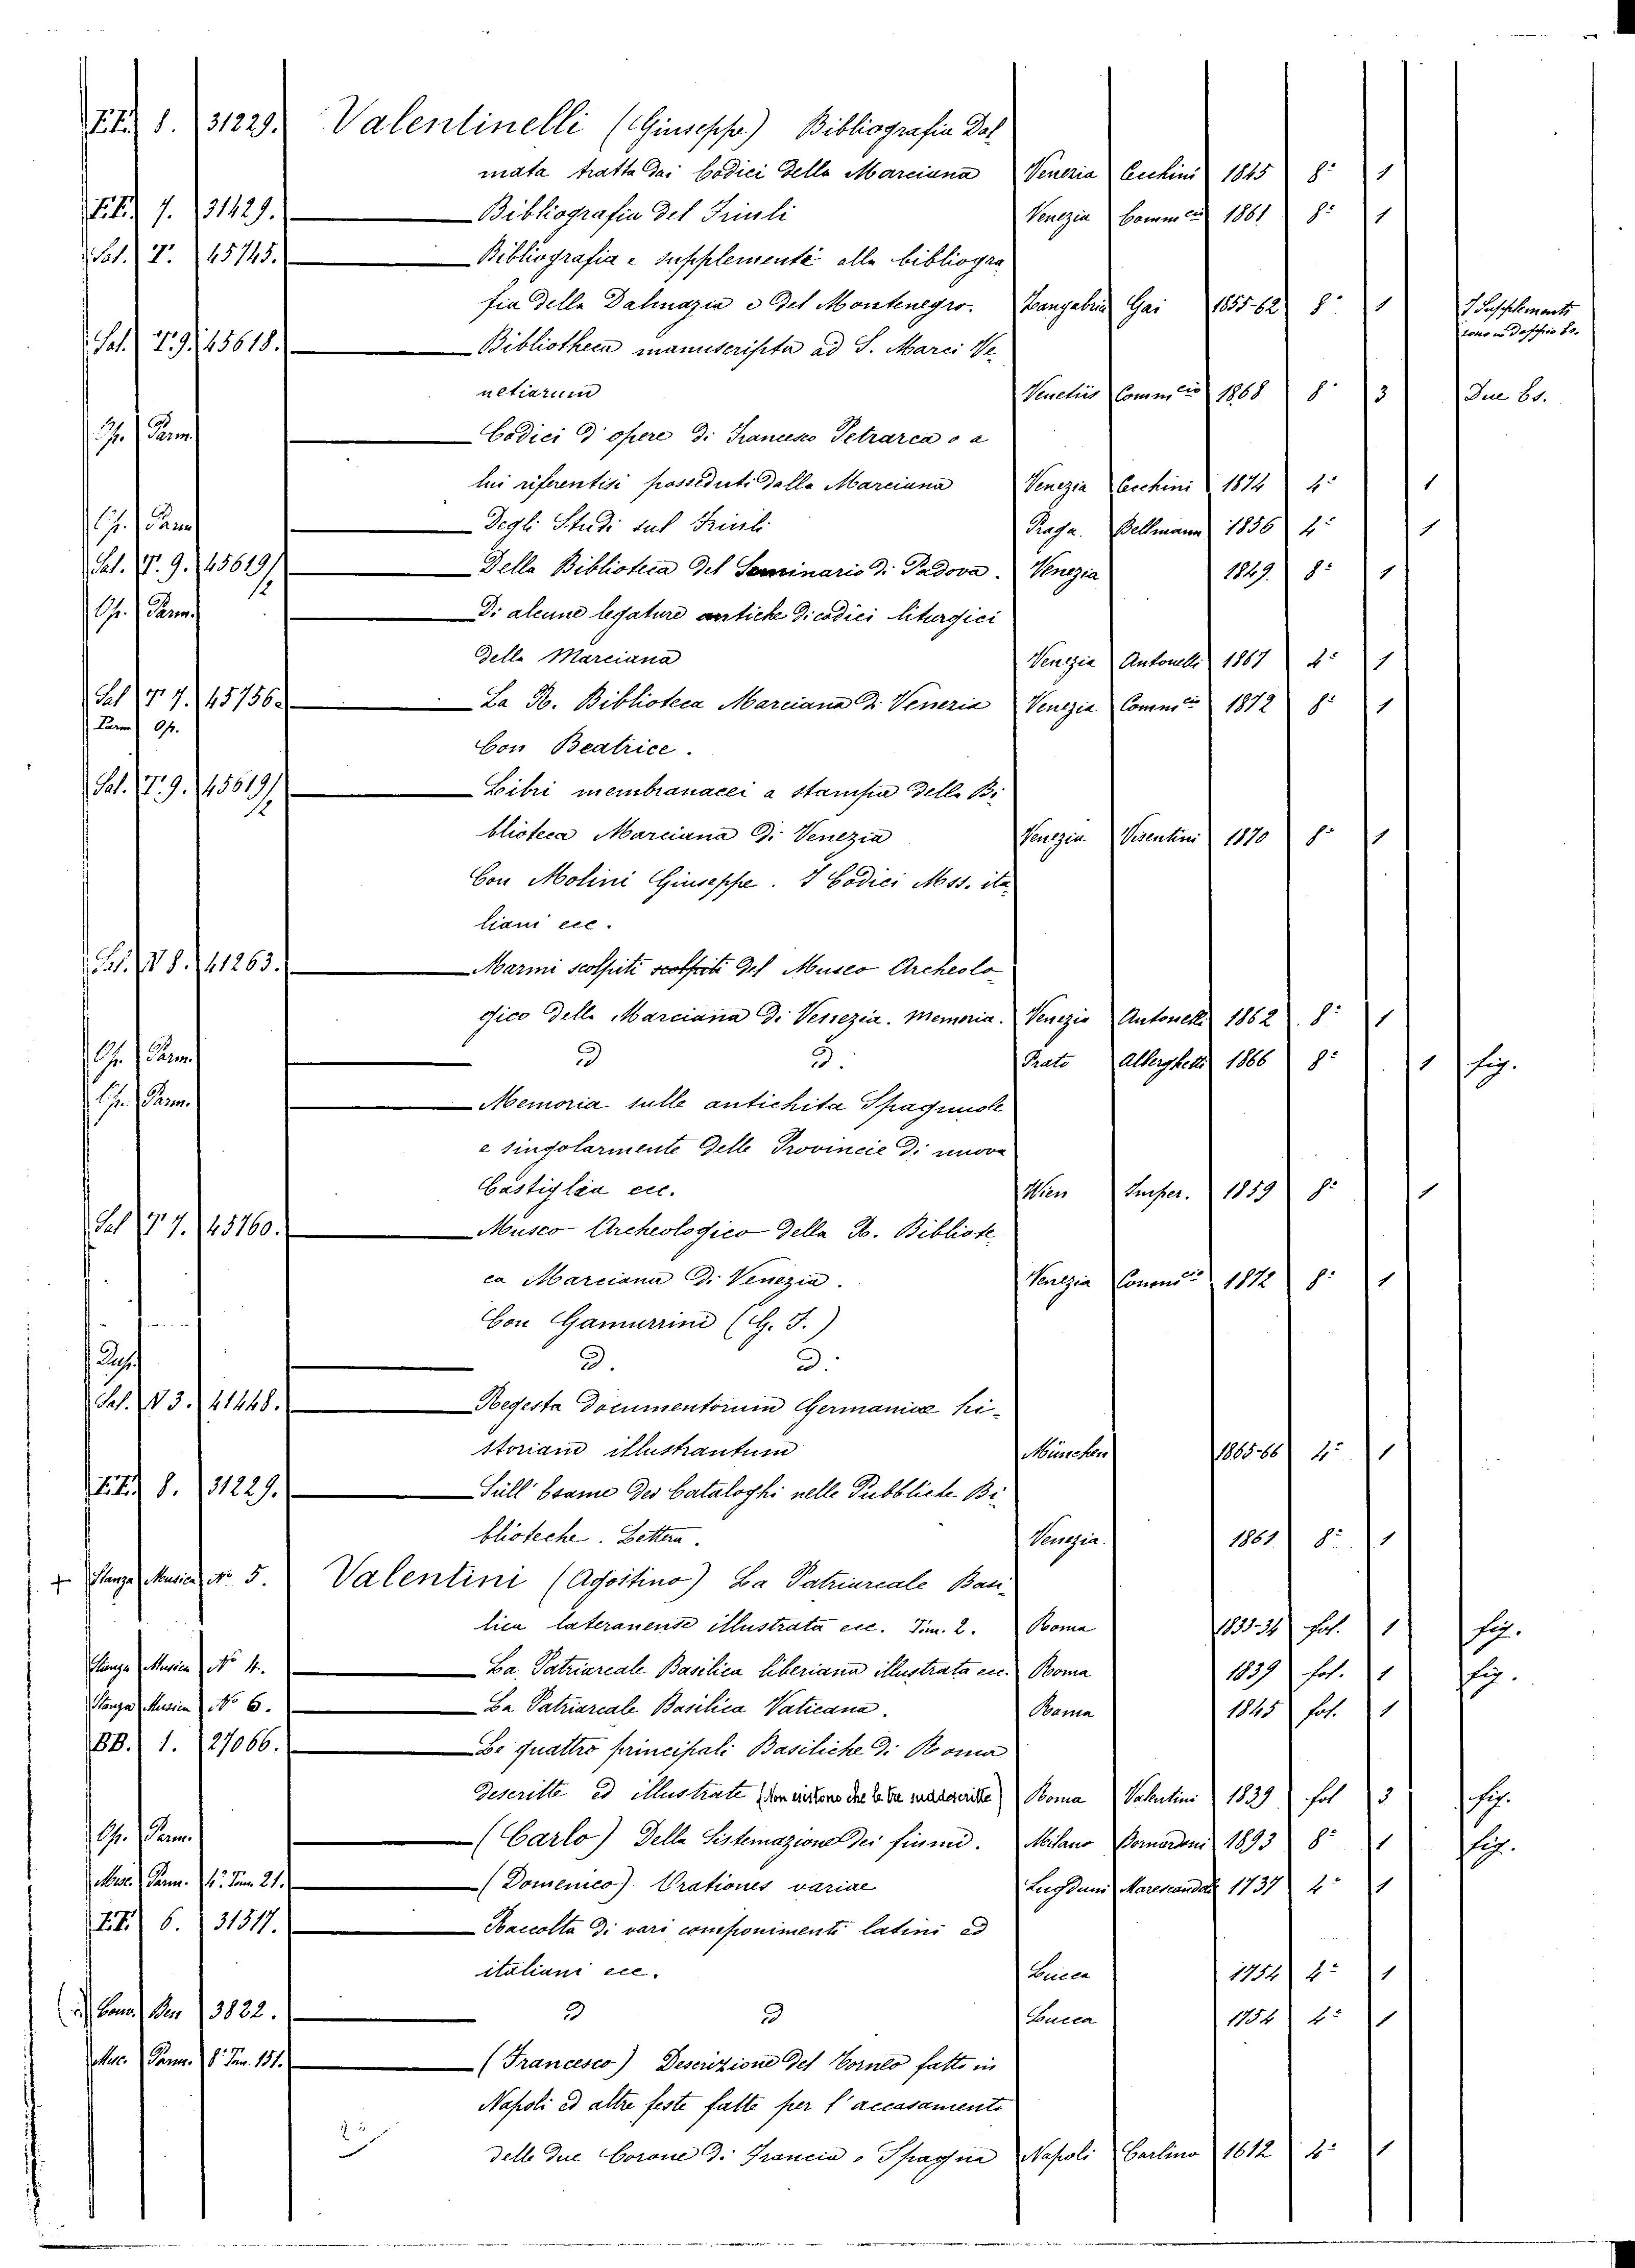 F.F. 8. 31229. Valentinelli (Giuseppe) Bibliografia Dal
mata tratta dai Codici della Marciana Venezia Cecchini 1845 8º 1
F.F. 7. 31429. Bibliografia del Friuli Venezia Commercio 1861 8º 1
Sal. V. 45745. Bibliografia e supplementi alla bibliogra
fia della Dalmazia e del Montenegro. Zangabria Gai 1855-62 8º 1 I Supplementi
sono in doppio Es.
Sal. V. 9. 45618. Bibliotheca manuscripta ad S. Marci Ve
netiarum Venetiis Comm cio 1868 8º 3 Due Es.
Op. Parm. Codici d'opere di Francesco Petrarca o a
lui riferentisi posseduti dalla Marciana Venezia Cecchini 1874 4º 1
Op. Parm Degli Studi sul Friuli Praga. Bellmann 1856 4º 1
Sal. V. 9. 45619/2 Della Biblioteca del Seminario di Padova. Venezia 1849. 8º 1
Op. Parm. Di alcune legature antiche di codici liturgici
della Marciana Venezia Antonelli 1867 4º 1
Sal V 7. 45756. La R. Biblioteca Marciana di Venezia Venezia Comm cio 1872 8º 1
Parm Op.
Con Beatrice.
Sal. V. 9. 45619/2 Libri membranacei a stampa della Bi
blioteca Marciana di Venezia Venezia Visentini 1870 8º 1
Con Molini Giuseppe. I Codici Mss. ita
liani ecc.
Sal. V 8. 41263. Marmi scolpiti scolpiti del Museo Archeolo
gico della Marciana di Venezia. Memoria. Venezia Antonelli 1862 8º 1
Op. Parm. D D. Prato Alberghetti 1866 8º 1 fig.
Op. Parm. Memoria sulle antichita Spagnuole
e singolarmente delle Provincie di nuova
Castiglia ecc. Wien Imper. 1859 8º 1
Sal V 7. 45760. Museo Archeologico della R. Bibliote
ca Marciana di Venezia. Venezia Comm cio 1872 8º 1
Con Gamurrini (G. F.)
Dup. D. D.
Sal. V 3. 41448. Regesta documentorum Germaniae hi-
storiam illustrantum München 1865-66 4º 1
F.F. 8. 31229. Sull' Esame dei Cataloghi nelle Pubbliche Bi
blioteche. Lettera. Venezia. 1861 8º 1
+ Stanza Musica Nº 5. Valentini (Agostino) La Patriarcale Basi-
lica lateranense illustrata ecc. Tom. 2. Roma 1833-34 fol. 1 fig.
Stanza Musica Nº 4. La Patriarcale Basilica liberiana illustrata ecc. Roma 1839 fol. 1 fig.
Stanza Musica Nº 6. La Patriarcale Basilica Vaticana. Roma 1845 fol. 1
BB. 1. 27066. Le quattro principali Basiliche di Roma
descritte ed illustrate (Non esistono che le tre suddescritte) Roma Valentini 1839 fol 3 fig.
Op. Parm. (Carlo) Della Sistemazione dei fiumi. Milano Bernardoni 1893 8º 1 fig.
Misc. Parm. 4º Tom. 21. (Domenico) Orationes variae Lugduni Marescandoli 1737 4º 1
F.F. 6. 31517. Raccolta di vari componimenti latini ed
italiani ecc. Lucca 1754 4º 1
3822. D D Lucca 1754 4º 1
Misc. Parm. 8º Tom. 151. (Francesco) Descrizione del Torneo fatto in
Napoli ed altre feste fatte per l'accasamento
delle due Corone di Francia e Spagna Napoli Carlino 1612 4º 1